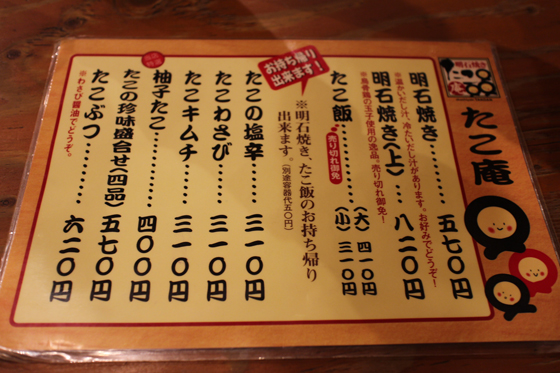 明石焼き
たこ庵
たこ庵
明石焼き………五七〇円
※温かいだし汁、冷たいだし汁があります。お好みでどうぞ!
明石焼き〈上〉…八二〇円
の玉子使用の逸品。売り切れ御免!
たこ飯……〈大〉四一〇円
〈小〉三一〇円
売り切れ御免
お持ち帰り
出来ます!
※明石焼き、たこ飯のお持ち帰り
出来ます。(別途容器代五〇円)
たこの塩辛………三一〇円
たこわさび………三一〇円
たこキムチ………三一〇円
柚子たこ…………四〇〇円
たこの珍味盛合せ〈四品〉
たこぶつ…………五七〇円
※わさび醤油でどうぞ。
六二〇円